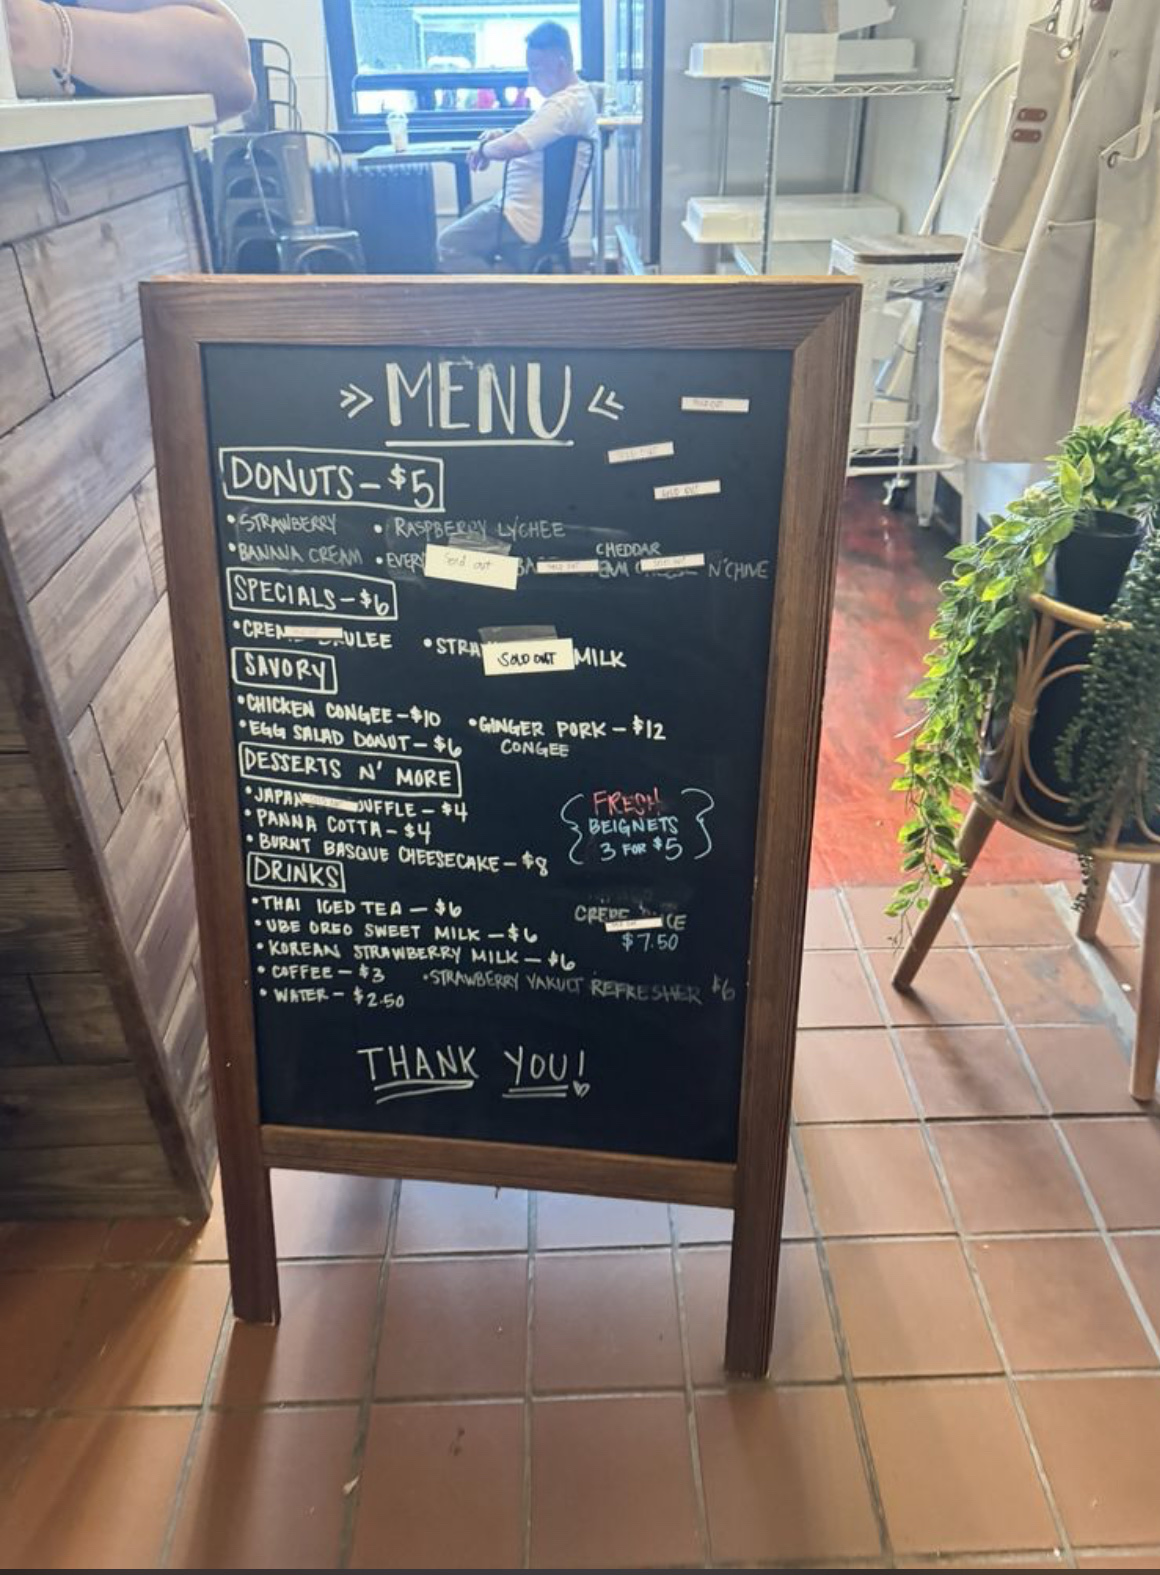 » MENU «
DONUTS - $5
• STRAWBERRY • RASPBERRY LYCHEE
• BANANA CREAM • CHEDDAR N' CHIVE
Sold out
SPECIALS - $6
• STRA MILK
SOLD OUT
SAVORY
• CHICKEN CONGEE - $10 • GINGER PORK - $12
CONGEE
• EGG SALAD DONUT - $6
DESSERTS N' MORE
• JAPAN OUFFLE - $4
• PANNA COTTA - $4
• BURNT BASQUE CHEESECAKE - $8
{ FRESH
BEIGNETS
3 FOR $5 }
DRINKS
• THAI ICED TEA - $6
• UBE OREO SWEET MILK - $6
• KOREAN STRAWBERRY MILK - $6
• COFFEE - $3 • STRAWBERRY YAKULT REFRESHER $6
• WATER - $2.50
CREPE
$7.50
THANK YOU!